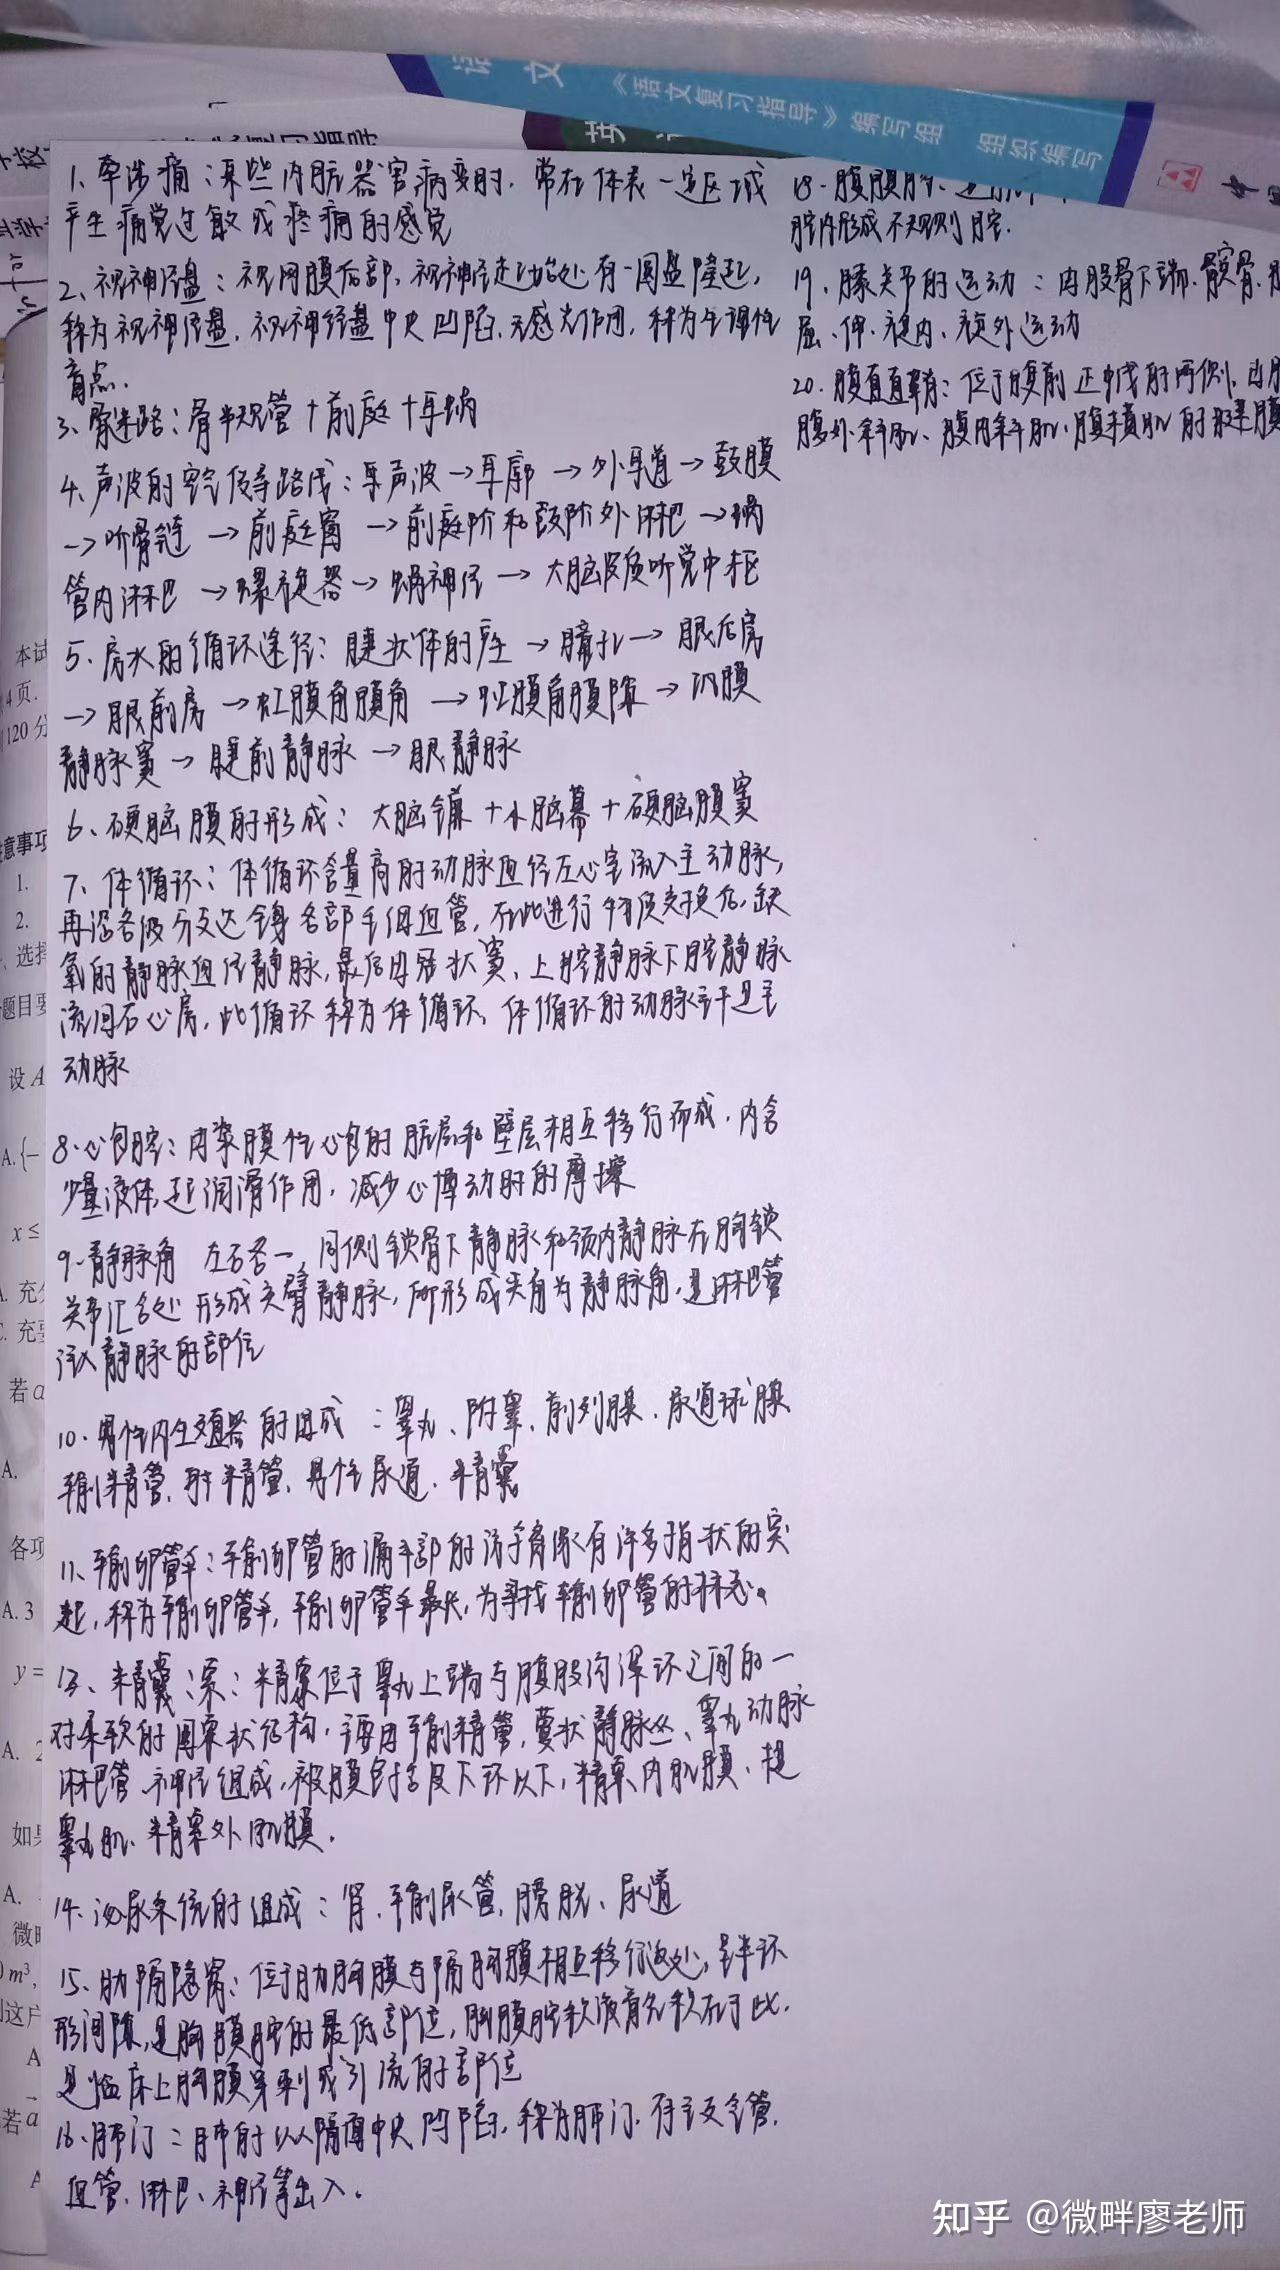 语 文 《语文复习指导》编写组 组织编写
英
复习指导
1、牵涉痛：某些内脏器官病变时，常在体表一定区域
产生痛觉过敏或疼痛的感觉
2、视神经盘：视网膜后部，视神经起始处有一圆盘隆起，
称为视神经盘，视神经盘中央凹陷，无感光作用，称为生理性
盲点.
3、骨迷路：骨半规管＋前庭＋耳蜗
4、声波的空气传导路线：声波→耳廓→外耳道→鼓膜
→听骨链→前庭窗→前庭阶和鼓阶外淋巴→蜗
管内淋巴→螺旋器→蜗神经→大脑皮质听觉中枢
5、房水的循环途径：睫状体的产生→瞳孔→眼后房
→眼前房→虹膜角膜角→虹膜角膜隙→巩膜
静脉窦→睫前静脉→眼静脉
6、硬脑膜的形成：大脑镰＋小脑幕＋硬脑膜窦
7、体循环：体循环含量高的动脉血经左心室流入主动脉，
再沿各级分支达全身各部毛细血管，在此进行物质交换后，缺
氧的静脉血经静脉，最后由冠状窦、上腔静脉下腔静脉
流回右心房，此循环称为体循环，体循环的动脉主干是主
动脉
8.心包腔：由浆膜性心包的脏层和壁层相互移行而成.内含
少量液体,起润滑作用，减少心搏动时的摩擦
9.静脉角 左右各一，同侧锁骨下静脉和颈内静脉在胸锁
关节汇合处形成头臂静脉，所形成夹角为静脉角，是淋巴管
注入静脉的部位
10.男性内生殖器的组成：睾丸、附睾、前列腺、尿道球腺
输精管、射精管、男性尿道.精囊
11、输卵管伞：输卵管的漏斗部的游离缘有许多指状的突
起，称为输卵管伞，输卵管伞最长，为寻找输卵管的标志。
13、精索：精索位于睾丸上端与腹股沟深环之间的一
对柔软的圆索状结构，主要由输精管，蔓状静脉丛、睾丸动脉
淋巴管、神经组成，被膜包括皮下环以下，精索内肌膜、提
睾丸肌、精索外肌膜.
14.泌尿系统的组成：肾、输尿管、膀胱、尿道
15、肋膈隐窝：位于肋胸膜与膈胸膜相互移行返处，呈半环
形间隙，是胸膜腔的最低部位，胸膜腔积液首先积存于此.
是临床上胸膜穿刺或引流的部位
16.肺门：肺的纵膈面中央凹陷，称为肺门.有主支气管.
血管、淋巴、神经等出入.
18.腹膜腔：
腔内形成不规则腔.
19、膝关节的运动：由股骨下端、髌骨、
屈、伸、旋内、旋外运动
20.腹直肌鞘：位于腹前正中线的两侧，由
腹外斜肌、腹内斜肌、腹横肌的腱膜
本试
4页.
120分
意事项
1.
2.
选择
题目要
设A
A.{−
x≤
A. 充分
C. 充要
若a
A.
各项
A. 3
y=
A. 2
如果
A.
微
m³,
这户
A
若a
A
知乎 @微畔廖老师